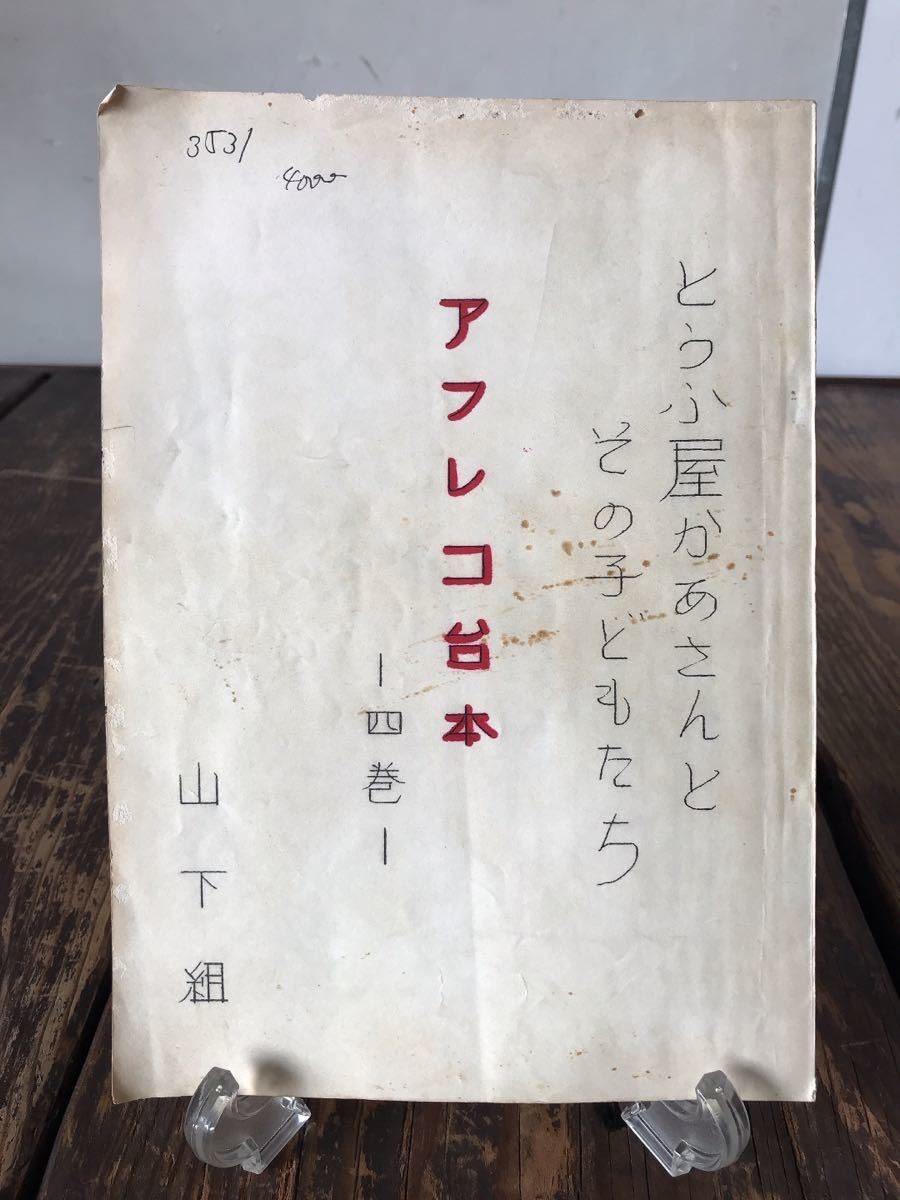 とうふ屋かあさんと
その子どもたち
アフレコ台本
ー四巻ー
山下組
3531